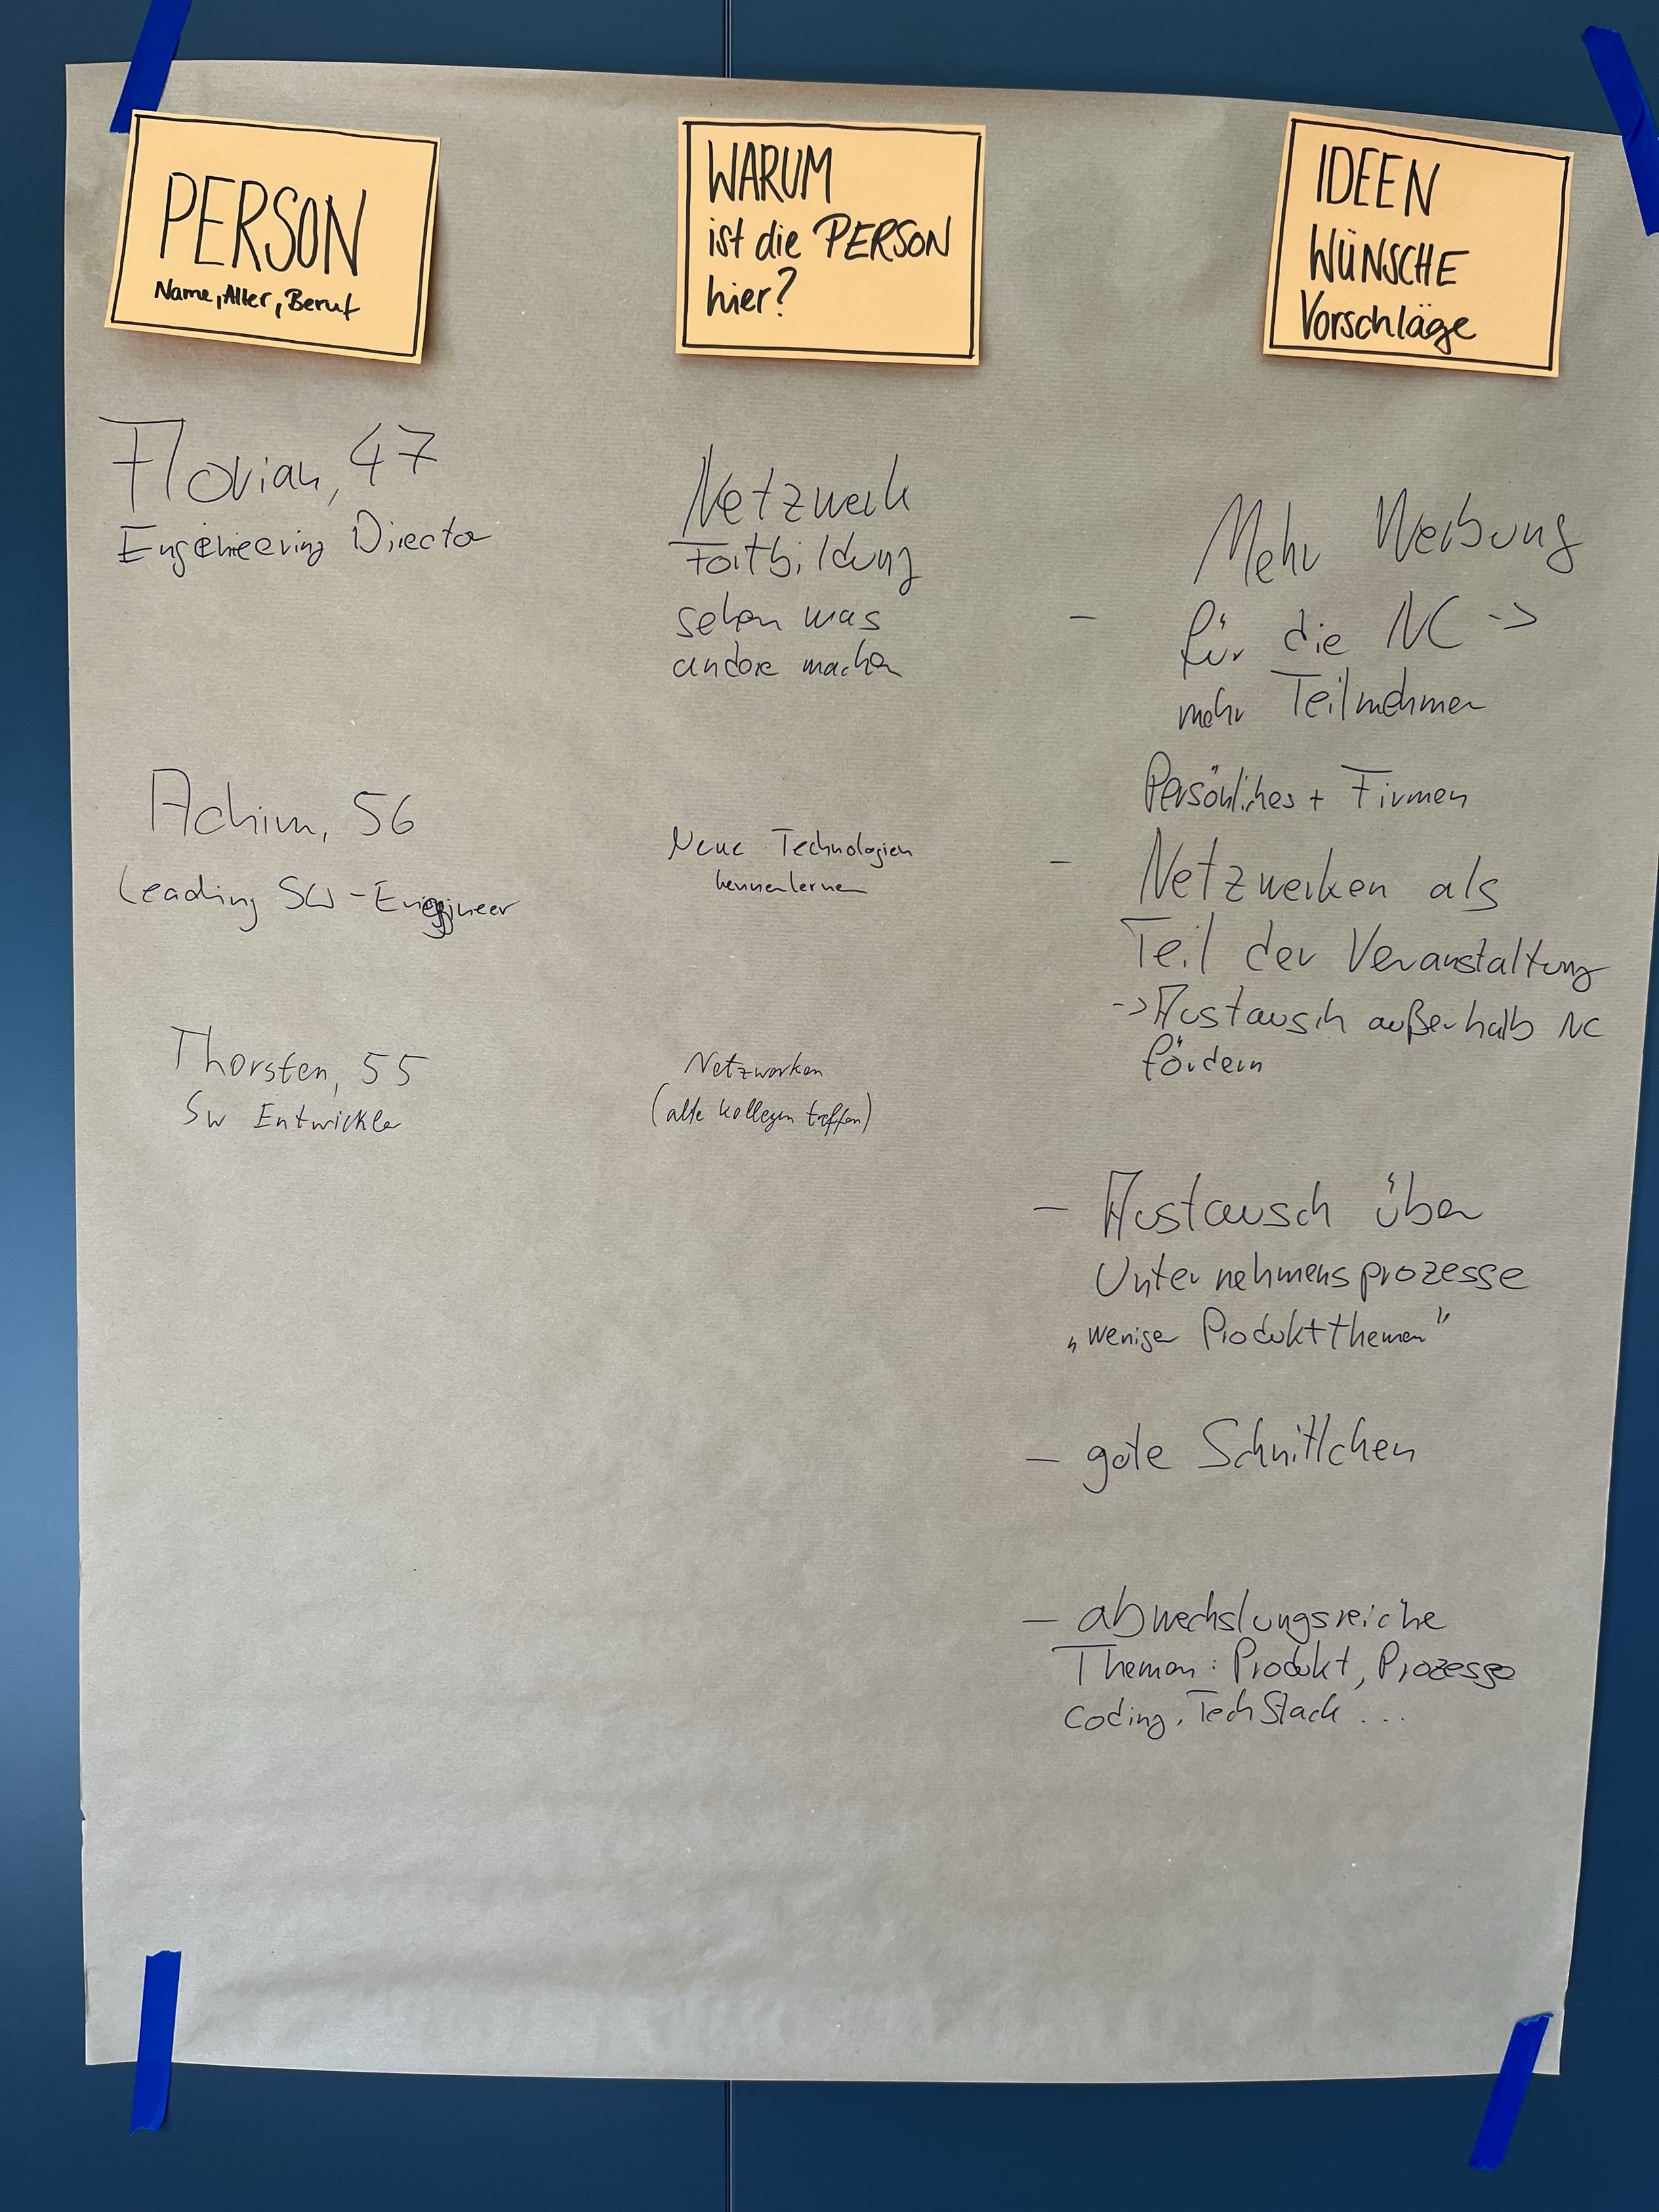 PERSON
Name, Alter, Beruf
WARUM
ist die PERSON
hier?
IDEEN
WÜNSCHE
Vorschläge
Florian, 47
Engeneering Director
Netzwerk
Fortbildung
sehen was
andere machen
- Mehr Werbung
für die NC ->
mehr Teilnehmer
Achim, 56
Leading SW-Engineer
Neue Technologien
kennenlernen
Persönliches + Firmen
- Netzwerken als
Teil der Veranstaltung
-> Austausch außerhalb NC
fördern
Thorsten, 55
SW Entwickler
Netzwerken
(alte Kollegen treffen)
- Austausch über
Unternehmensprozesse
„weniger Produktthemen"
- gute Schnittchen
- abwechslungsreiche
Themen: Produkt, Prozesse
Coding, TechStack ...